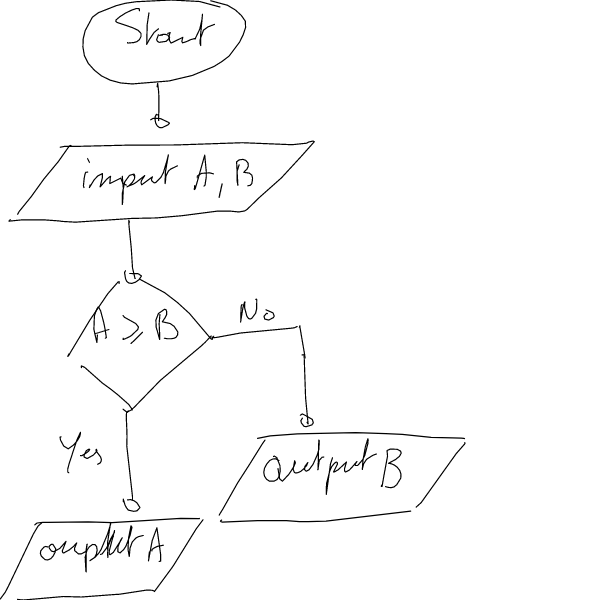 Start
input A, B
A ⩾ B
No
Yes
output B
A